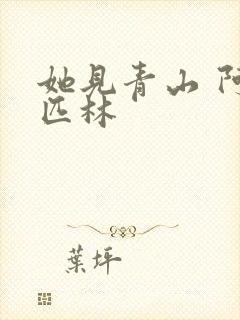 她見青山 阿
匹林
葉坪